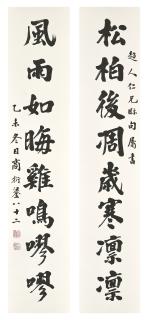 松柏後凋歲寒凛凛
超人仁兄□句屬書
風雨如晦雞鳴嘐嘐
乙未冬日商衍鎏八十二